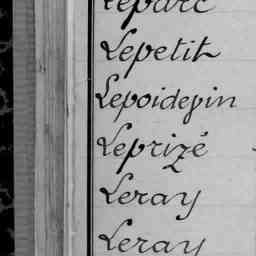 Leparc
Lepetit
Lepoidevin
Leprizé
Leray
Leray